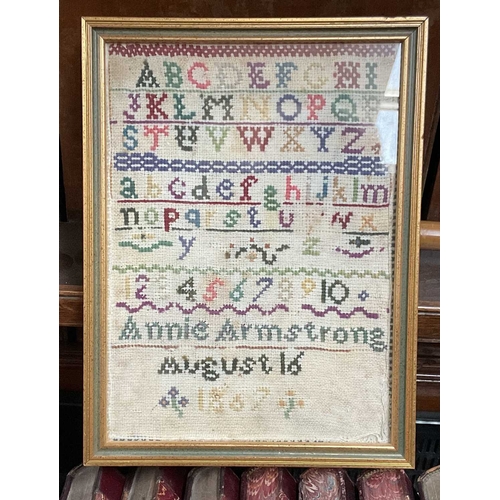 ABCDEFGHI
JKLMNOPQR
STUVWXYZ
abcdefghijklm
nopqrstuvwx
y z
12345678910
Annie Armstrong
August 16
1867